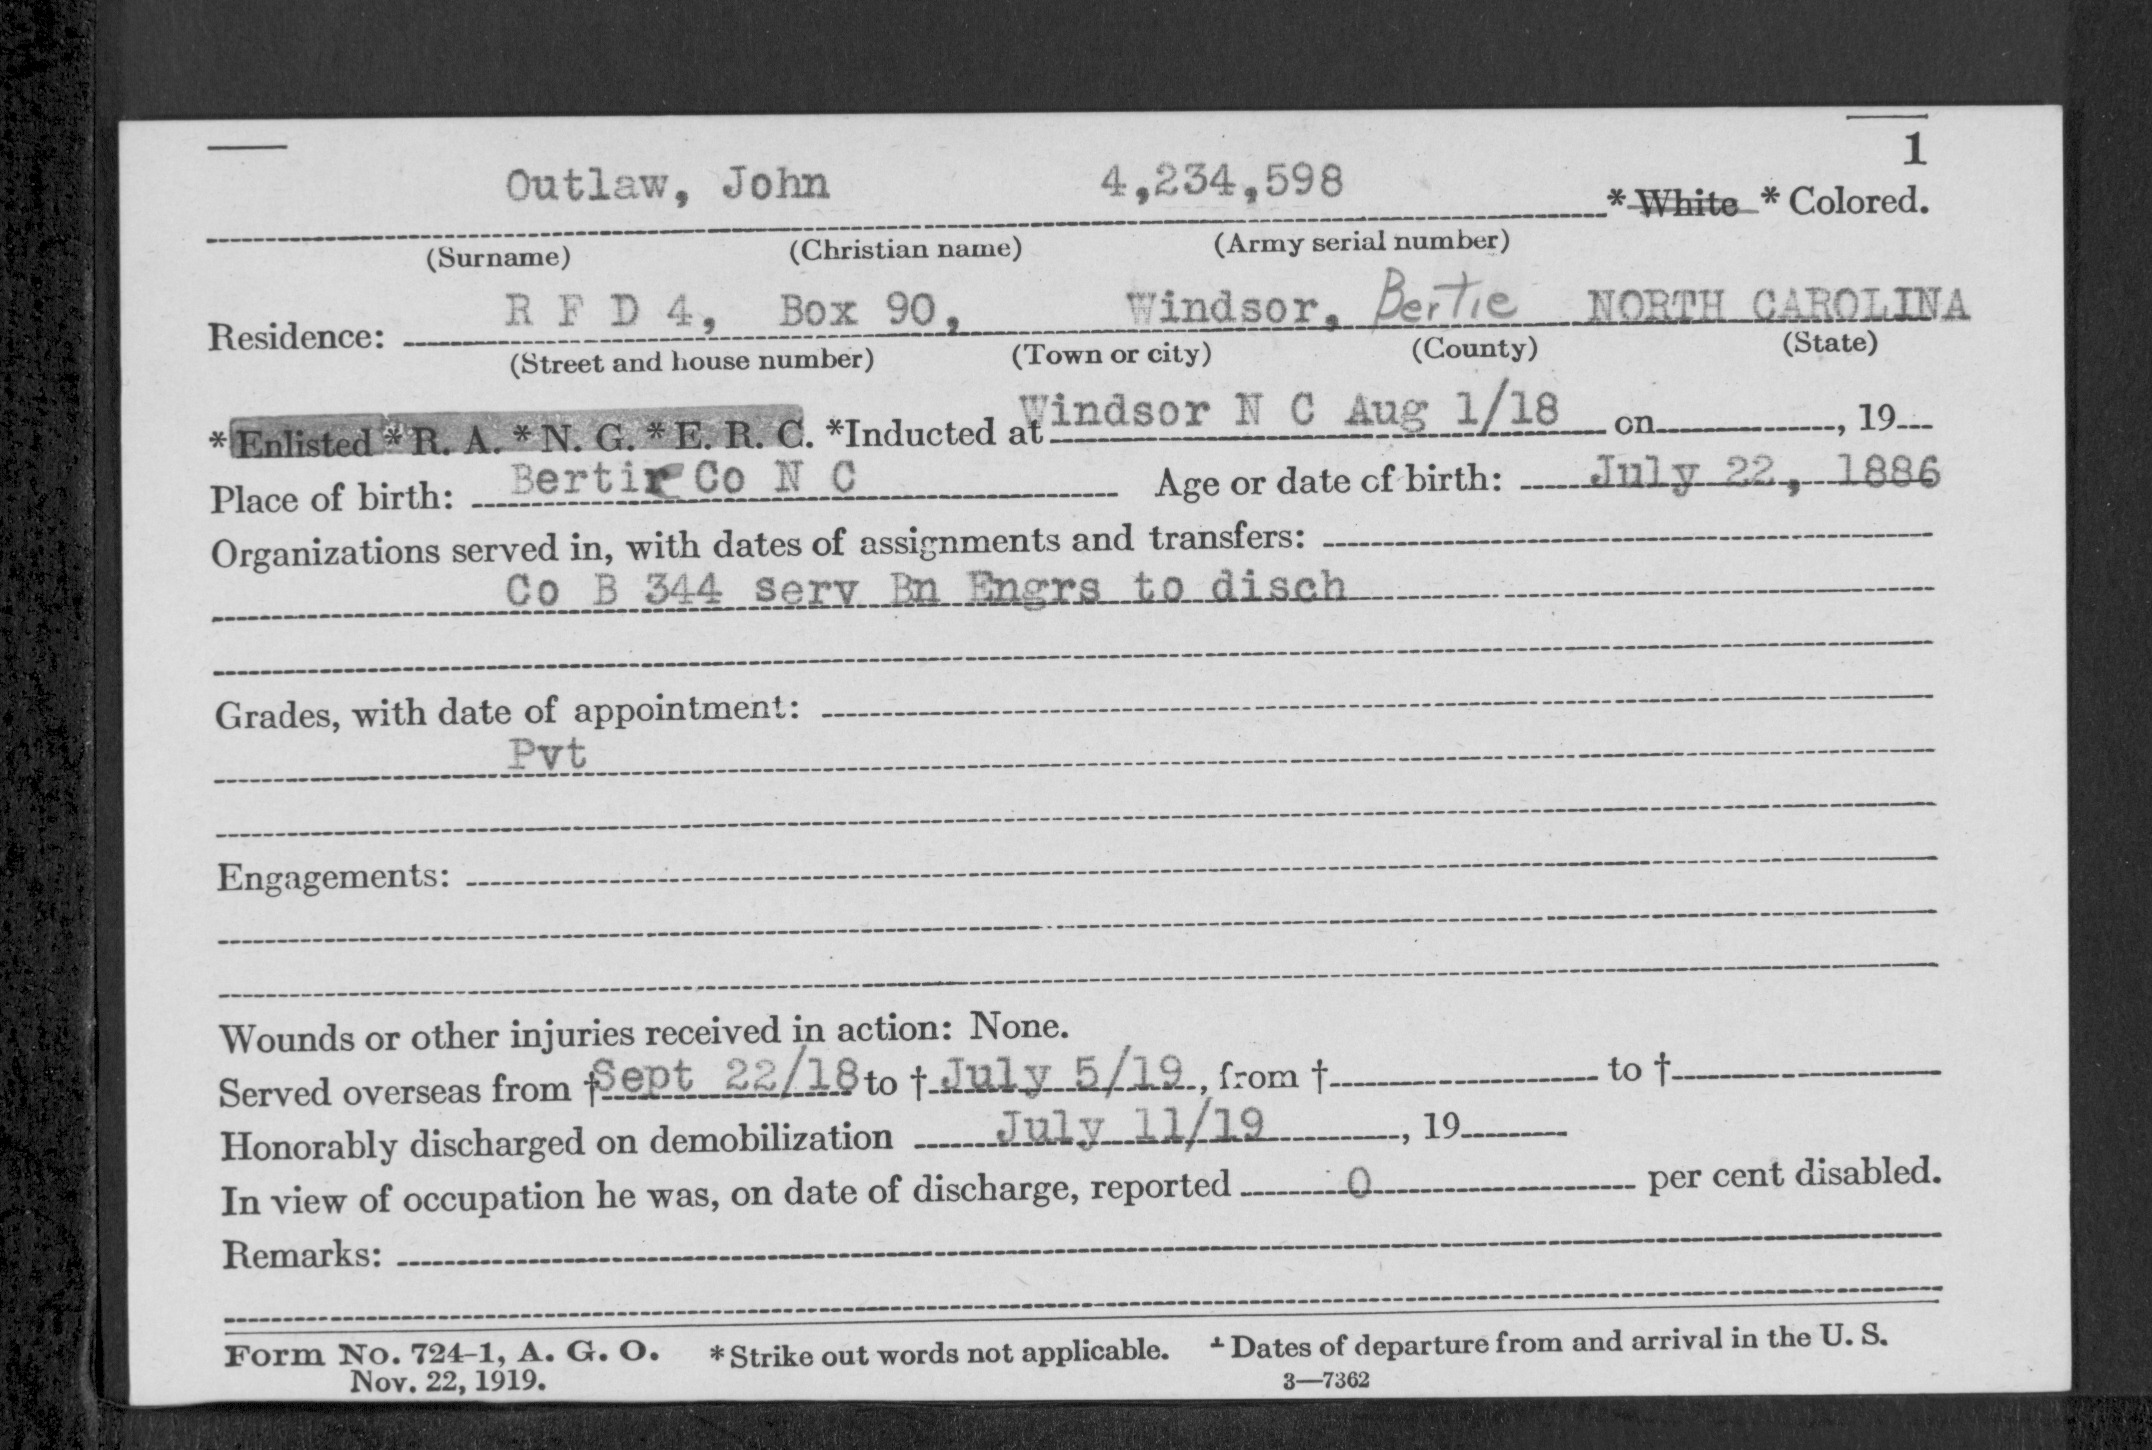 1
Outlaw, John 4,234,598 *White *Colored.
(Surname) (Christian name) (Army serial number)
Residence: R F D 4, Box 90, Windsor, Bertie NORTH CAROLINA
(Street and house number) (Town or city) (County) (State)
*Enlisted *R. A. *N. G. *E. R. C. *Inducted at Windsor N C Aug 1/18 on , 19
Place of birth: Bertir Co N C Age or date of birth: July 22, 1886
Organizations served in, with dates of assignments and transfers:
Co B 344 serv Bn Engrs to disch
Grades, with date of appointment:
Pvt
Engagements:
Wounds or other injuries received in action: None.
Served overseas from †Sept 22/18 to † July 5/19, from † to †
Honorably discharged on demobilization July 11/19, 19
In view of occupation he was, on date of discharge, reported 0 per cent disabled.
Remarks:
Form No. 724-1, A. G. O. *Strike out words not applicable. † Dates of departure from and arrival in the U. S.
Nov. 22, 1919. 3—7362